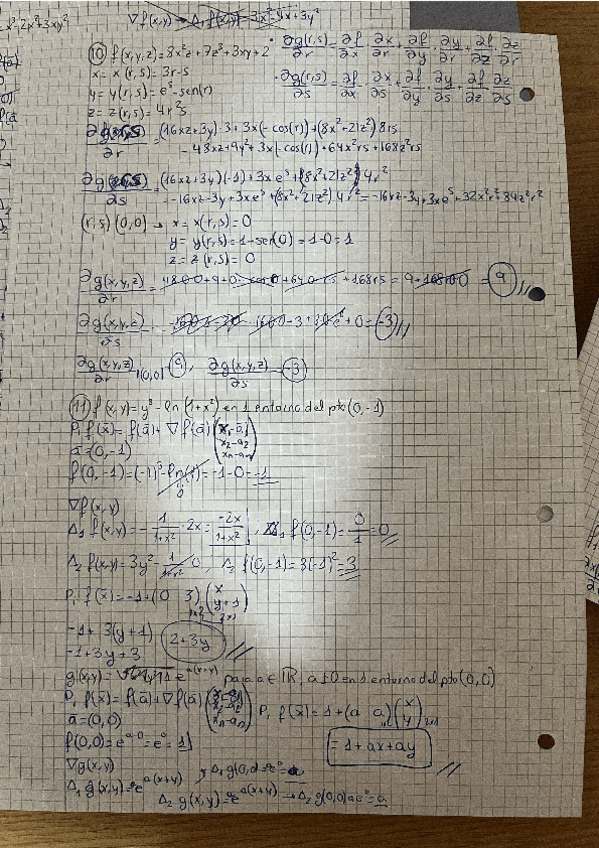 x³-2x²+3xy²
∇f(x,y) → Δ₁ f(x,y) = 3x² 4x+3y²
10) f(x,y,z) = 8x²z + 7z³ + 3xy + 2
• ∂g(r,s)/∂r = ∂f/∂x · ∂x/∂r + ∂f/∂y · ∂y/∂r + ∂f/∂z · ∂z/∂r
x = x(r,s) = 3r-s
• ∂g(r,s)/∂s = ∂f/∂x · ∂x/∂s + ∂f/∂y · ∂y/∂s + ∂f/∂z · ∂z/∂s
y = y(r,s) = e^s - sen(r)
z = z(r,s) = 4r²s
∂g(r,s)/∂r = (16xz+3y)·3 + 3x(-cos(r)) + (8x²+21z²) 8rs
- 48xz+9y+3x(-cos(r))+64x²rs+168z²rs
∂g(r,s)/∂s = (16xz+3y)(-1) + 3x e^s + (8x²+21z²) 4r²
-16xz-3y+3xe^s+(8x²+21z²) 4r² = -16xz-3y+3xe^s+32x²r²+84z²r²
(r,s) (0,0) → x = x(r,s) = 0
y = y(r,s) = 1-sen(0) = 1-0 = 1
z = z(r,s) = 0
∂g(x,y,z)/∂r = 48·0·0+9+0·cos0+64·0·rs+168rs = 9+168·0·0 = 9
∂g(x,y,z)/∂s = 16·0·0-3+3·0·e^s+0 = -3
∂g(x,y,z)/∂r |(0,0) = 9, ∂g(x,y,z)/∂s = -3
11) f(x,y) = y³ - ln(1+x²) en 1 entorno del pto (0,-1)
P₁ f(x̄) = f(ā) + ∇f(ā) (x₁-a₁
x₂-a₂
xn-an)
ā = (0,-1)
f(0,-1) = (-1)³ - ln(1) = -1-0 = -1
0
∇f(x,y)
Δ₁ f(x,y) = - 1/(1+x²) · 2x = -2x/(1+x²), Δ₁ f(0,-1) = 0/1 = 0
Δ₂ f(x,y) = 3y² - 1/(1+x²) · 0, Δ₂ f(0,-1) = 3(-1)² = 3
P₁ f(x̄) = -1+(0 3)₁ₓ₂ (x
y+1)₂ₓ₁
-1+3(y+1)
2+3y
-1+3y+3
g(x,y) = e^a(x+y) para a ∈ ℝ, a≠0 en 1 entorno del pto (0,0)
P₁ f(x̄) = f(ā) + ∇f(ā) (x₁-a₁
x₂-a₂
xn-an)
P₁ f(x̄) = 1+(a a) (x
y)₂ₓ₁
ā = (0,0)
f(0,0) = e^a·0 = e⁰ = 1
= 1+ax+ay
∇g(x,y)
Δ₁ g(x,y) = e^a(x+y) → Δ₁ g(0,0) = e⁰ = a
Δ₂ g(x,y) = e^a(x+y) → Δ₂ g(0,0) ae⁰ = a